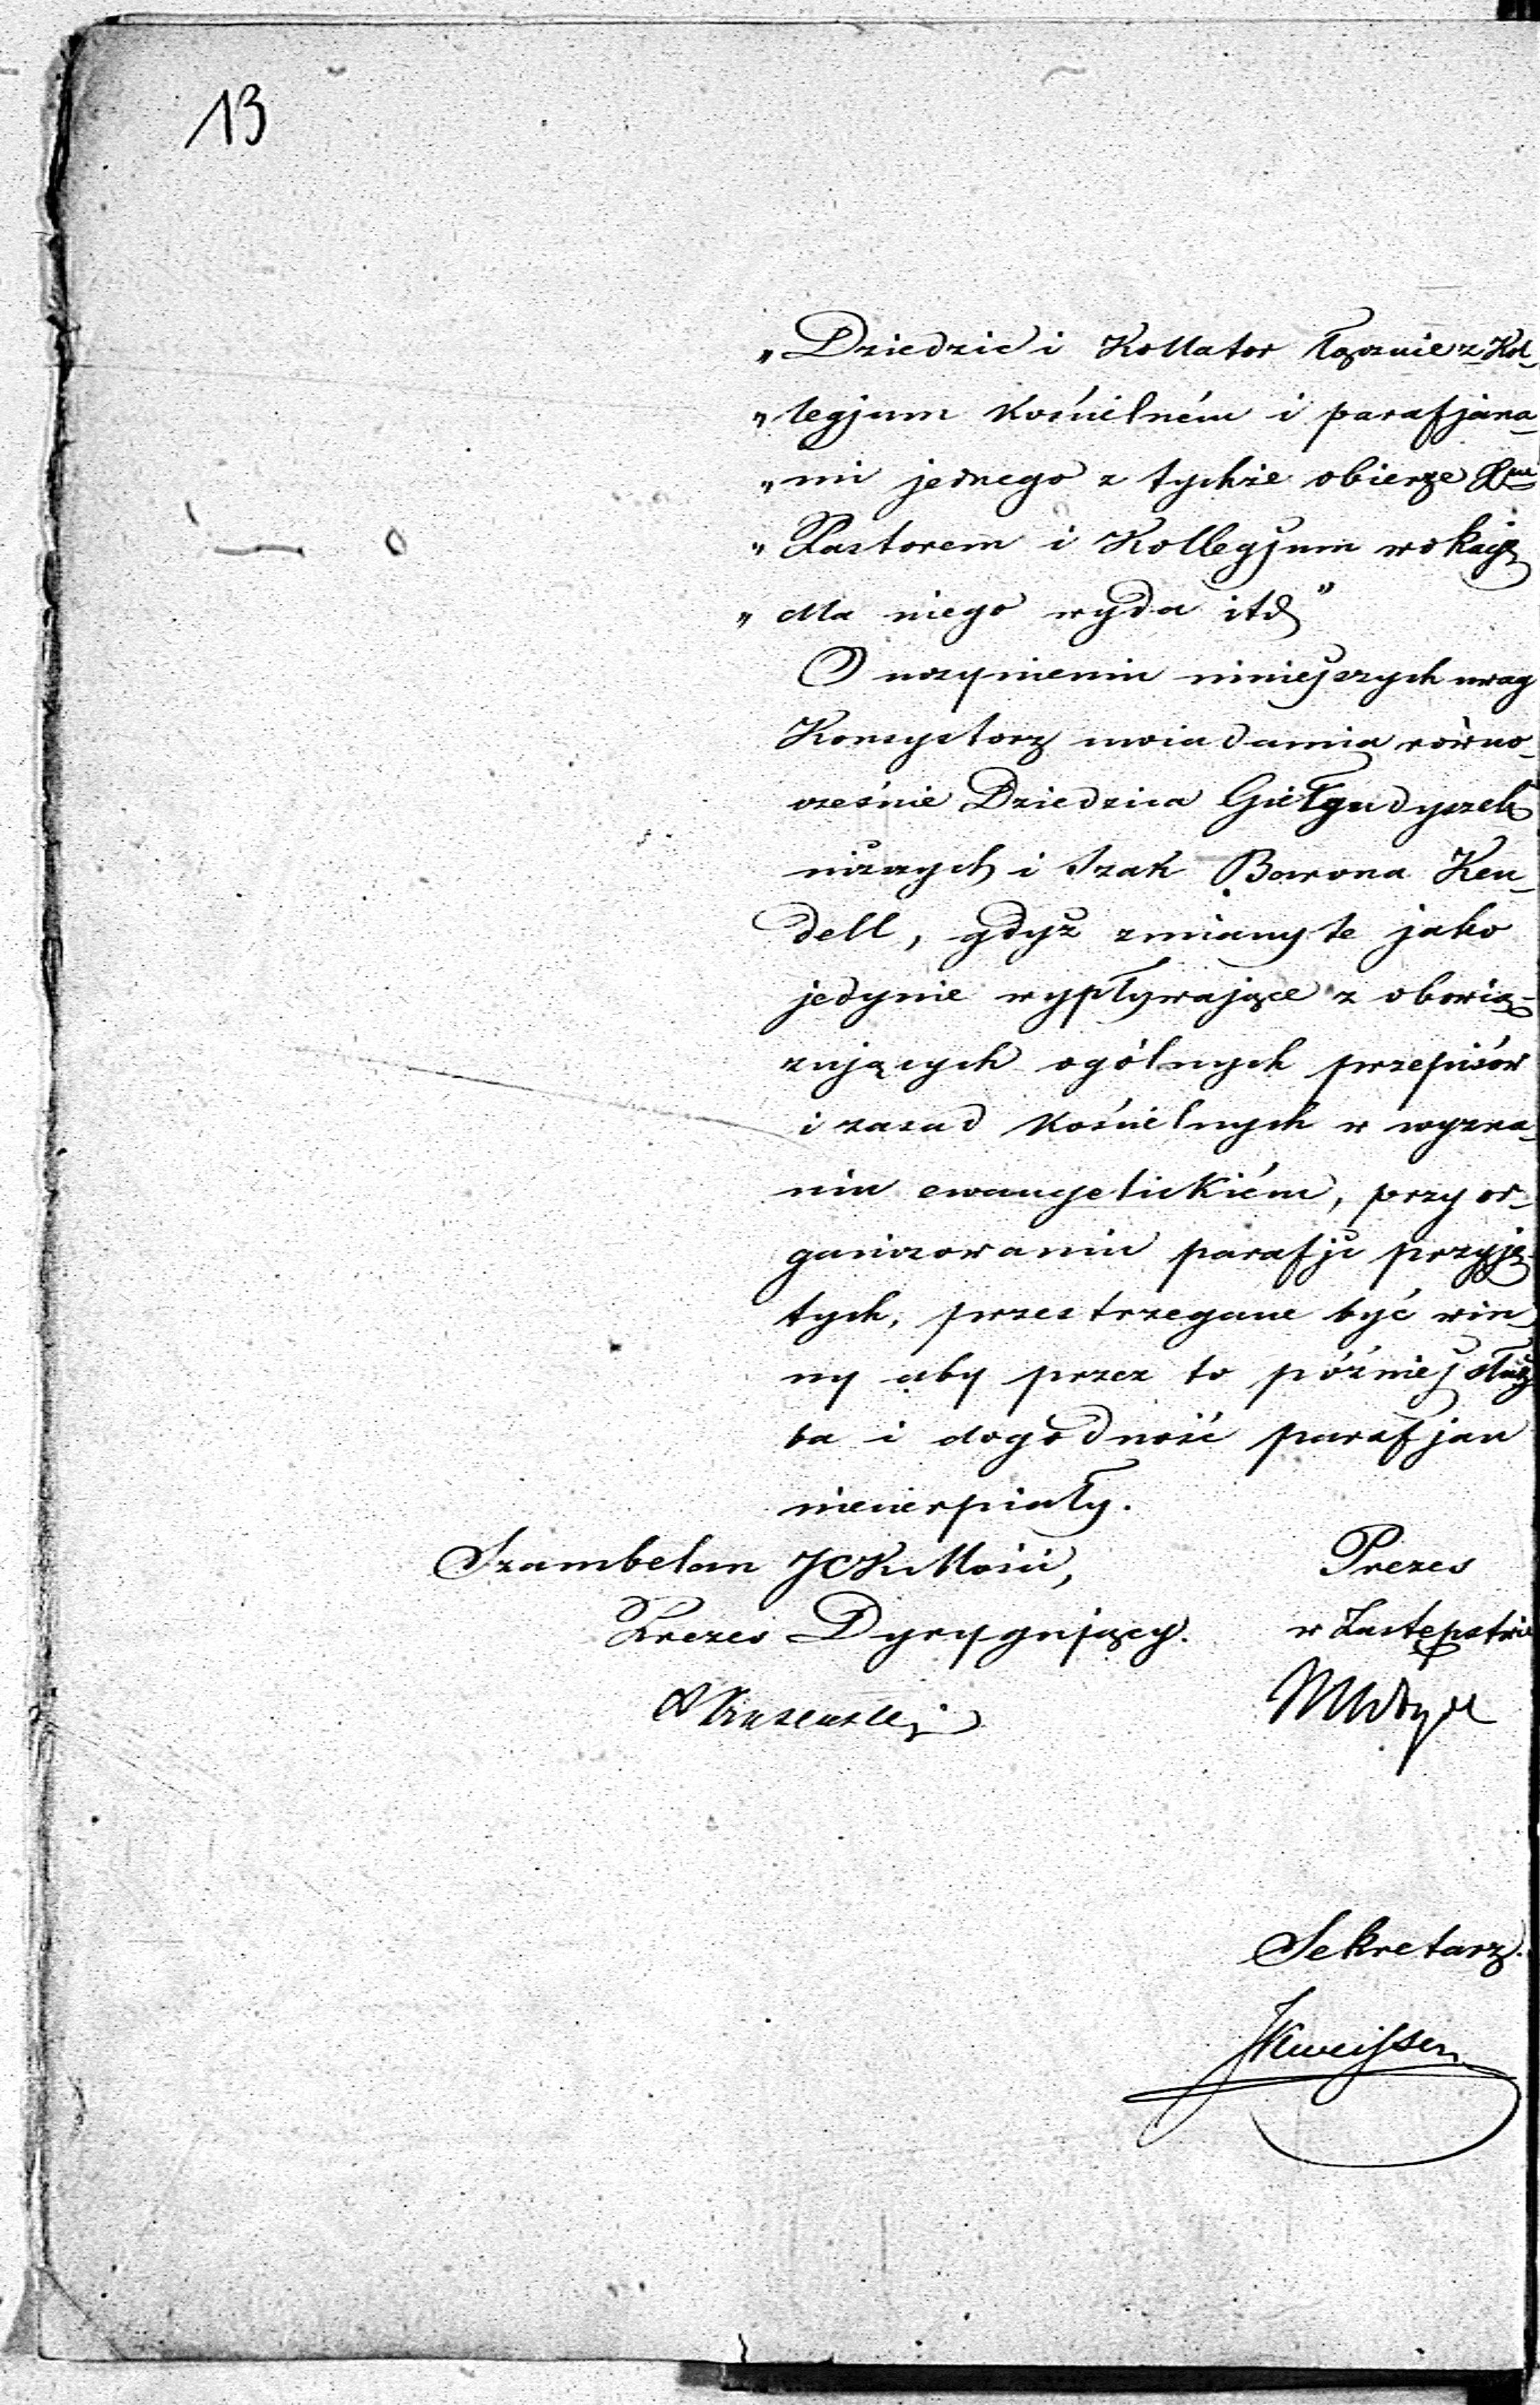 13
„Dziedzic i Kollator łącznie z Kol-
„legjum Kościelném i parafjana-
„mi jednego z tychże obierze
„Pastorem i Kollegjum wokację
„dla niego wyda itd"
O uczynieniu niniejszych uwag
Konsystorz uwiadamia równo-
cześnie Dziedzica Giełgudyszek
niższych i Szak Barona Keu-
dell, gdyż zmiany te jako
jedynie wypływające z obowią-
zujących ogólnych przepisów
i zasad Kościelnych w wyzna-
niu ewangelickiém, przy or-
ganizowaniu parafji przyję-
tych, przestrzegane być win-
ny aby przez to później służ
ba i dogodność parafjan
niecierpiały.
Szambelan JCK Mości, Prezes
Prezes Dyrygujący. w Zastępstwie
Sekretarz.